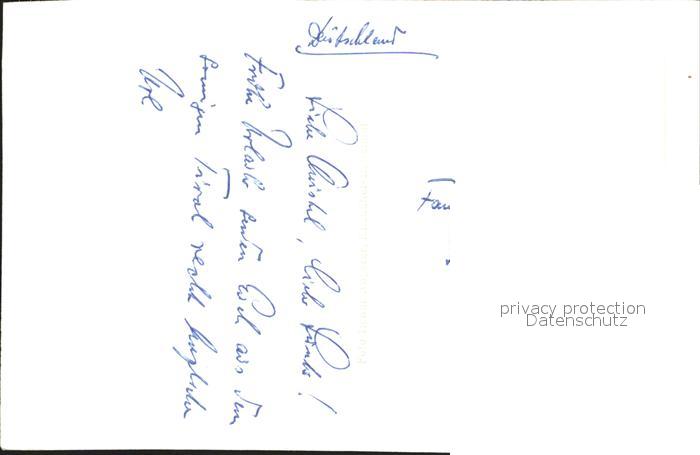 Deutschland
Liebe Christel, liebe Kinder!
Frohe Urlaub senden Euch aus dem
sonnigen Tirol recht herzliche
Fam
privacy protection
Datenschutz